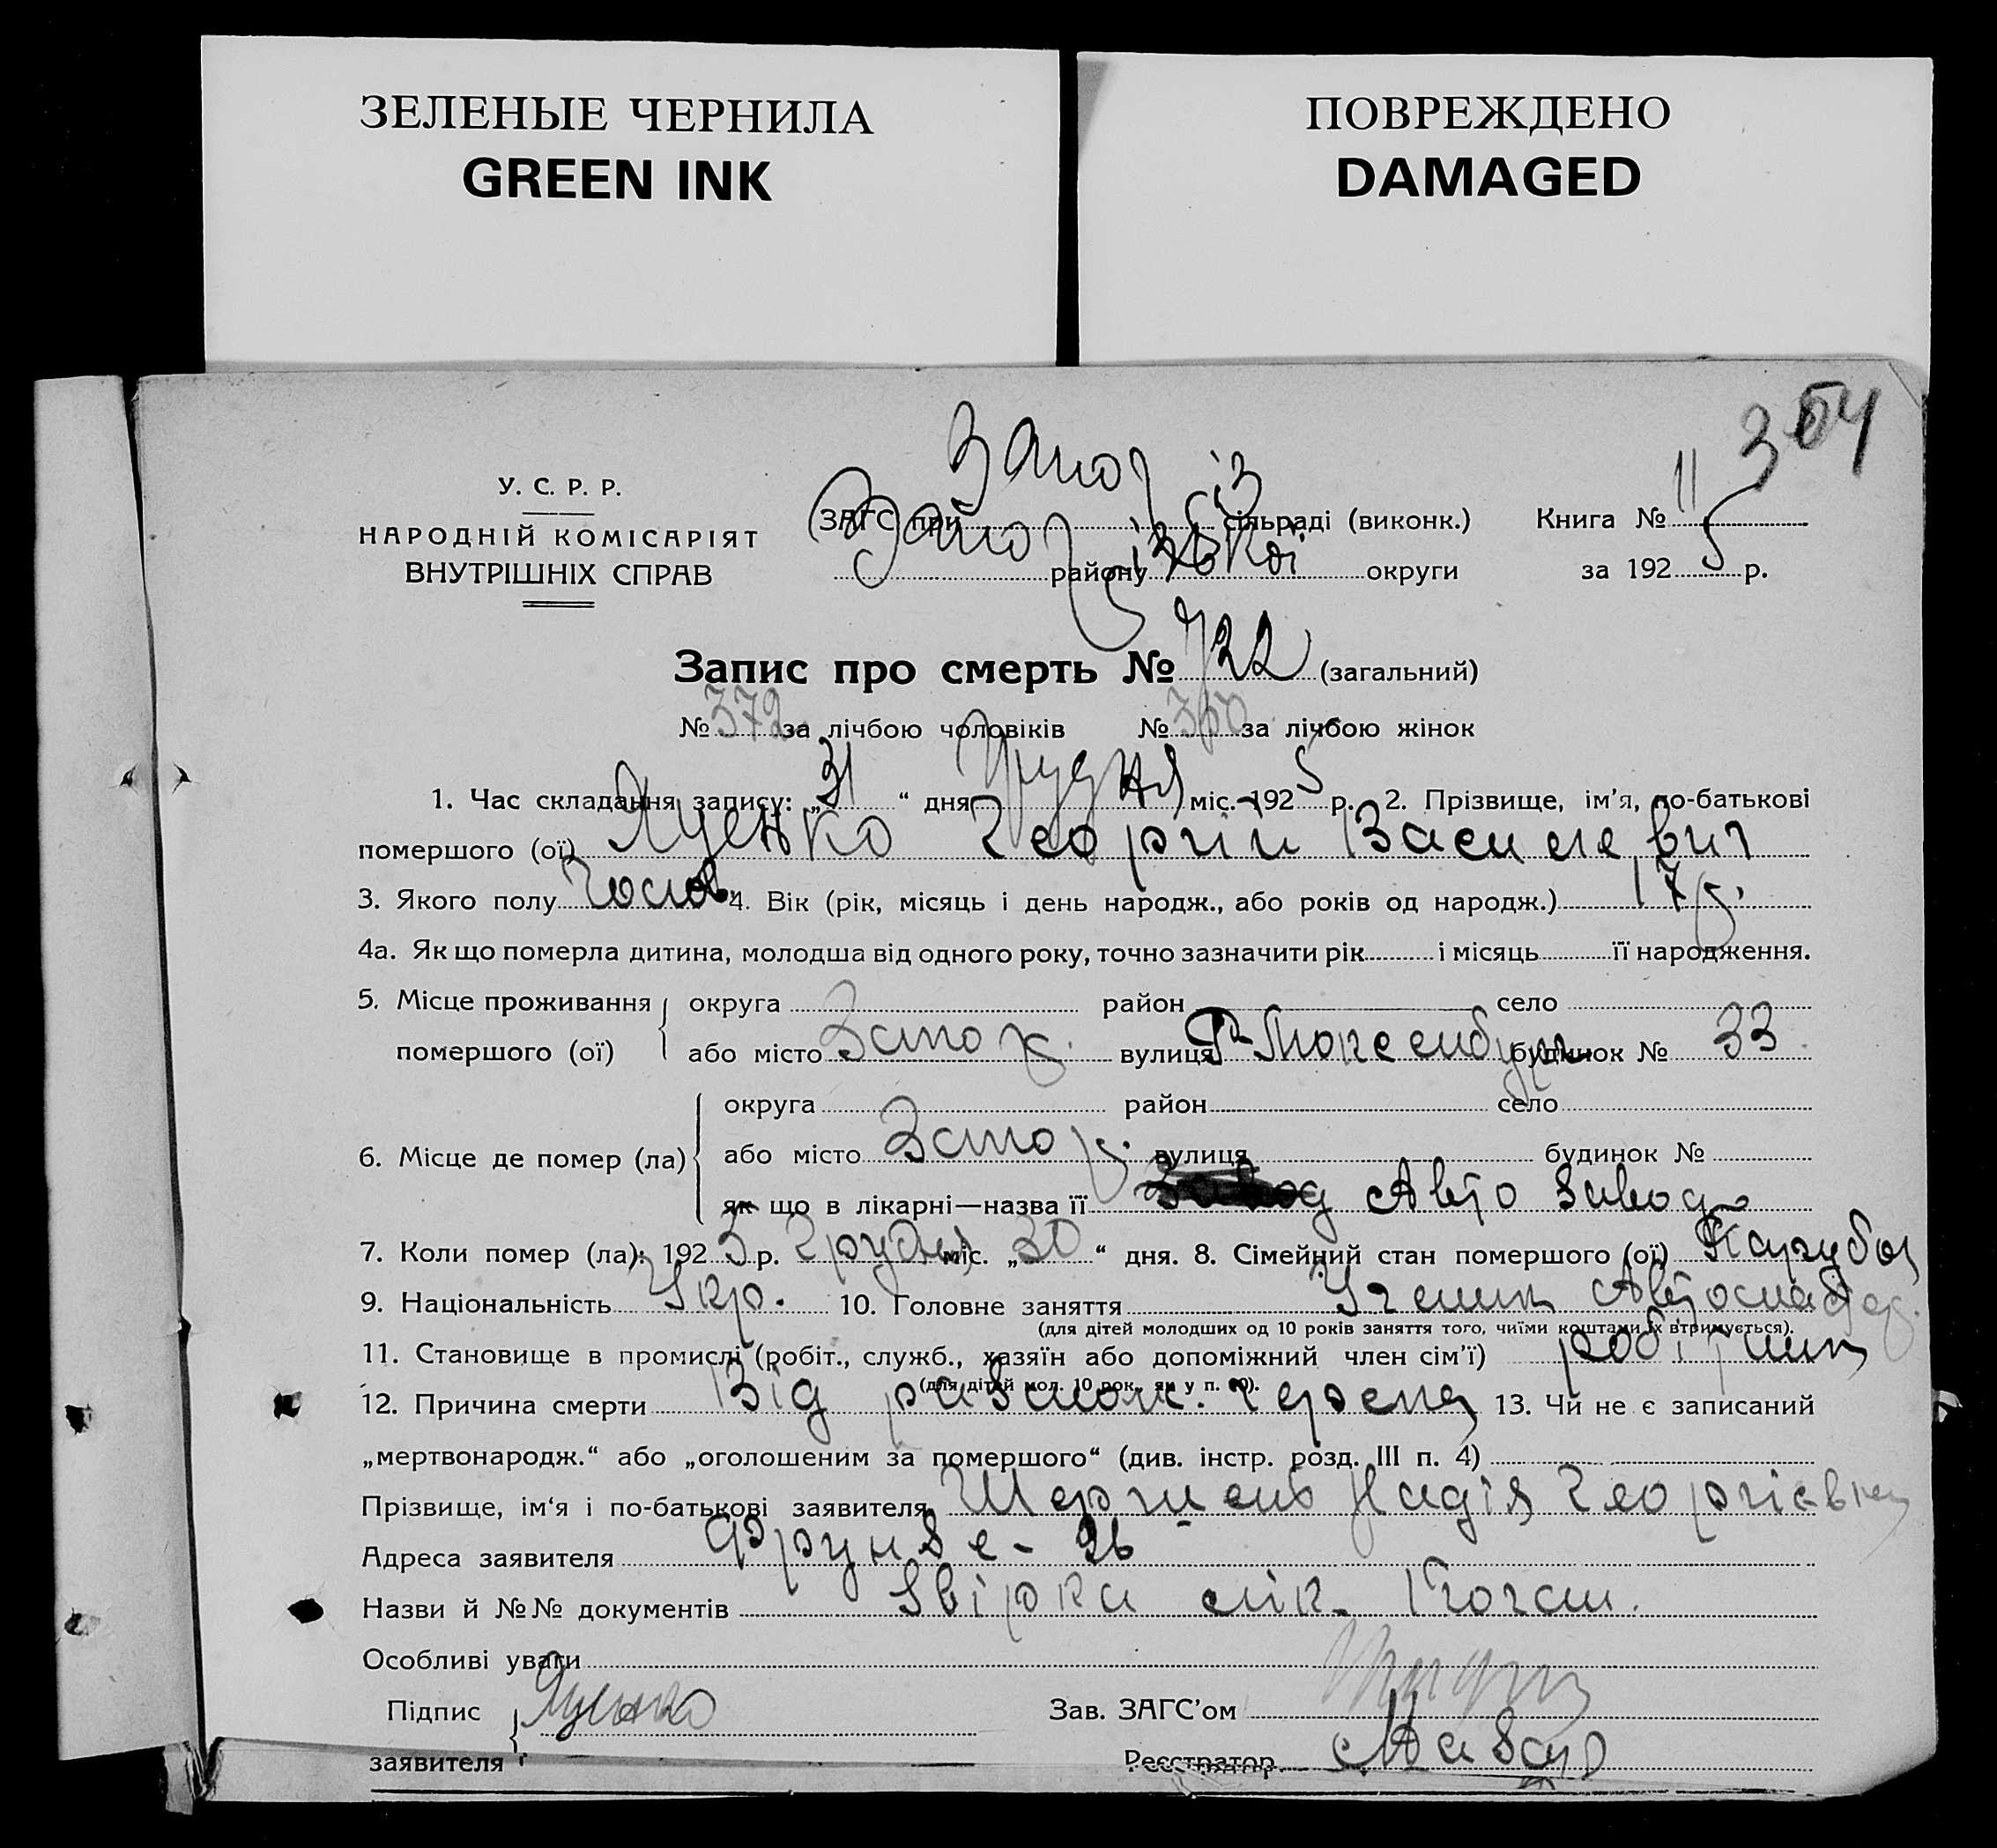 ЗЕЛЕНЫЕ ЧЕРНИЛА
GREEN INK
ПОВРЕЖДЕНО
DAMAGED
У. С. Р. Р.
НАРОДНІЙ КОМІСАРІЯТ
ВНУТРІШНІХ СПРАВ
ЗАГС при Запоріз сільраді (виконк.)
району Запорізької округи
Книга № 11
за 1925 р.
Запис про смерть № 722 (загальний)
№ 372 за лічбою чоловіків № 350 за лічбою жінок
1. Час складання запису: „31“ дня Грудня міс. 1925 р. 2. Прізвище, ім’я, по-батькові
помершого (ої) Яценко Георгій Василевич
3. Якого полу Чолов. 4. Вік (рік, місяць і день народж., або років од народж.) 17 р.
4а. Як що померла дитина, молодша від одного року, точно зазначити рік і місяць її народження.
5. Місце проживання помершого (ої) округа район село
або місто Запор. вулиця Р-Люксенбург будинок № 33
6. Місце де помер (ла) округа район село
або місто Запор. вулиця будинок №
як що в лікарні—назва її Авто завод
7. Коли помер (ла): 1925 р. Грудня міс. „30“ дня. 8. Сімейний стан помершого (ої) Парубок
9. Національність Укр. 10. Головне заняття Ученик
(для дітей молодших од 10 років заняття того, чиїми коштами їх втримується).
11. Становище в промислі (робіт., служб., хазяїн або допоміжний член сім’ї) робітник
(для дітей мол. 10 рок. як у п. 10).
12. Причина смерти Від размож. черепа 13. Чи не є записаний
„мертвонародж.“ або „оголошеним за помершого“ (див. інстр. розд. III п. 4)
Прізвище, ім‘я і по-батькові заявителя Надія Георгієвна
Адреса заявителя Фрунзе - 26
Назви й №№ документів лік. Коган.
Особливі уваги
Підпис заявителя Яценко
Зав. ЗАГС’ом
Реєстратор